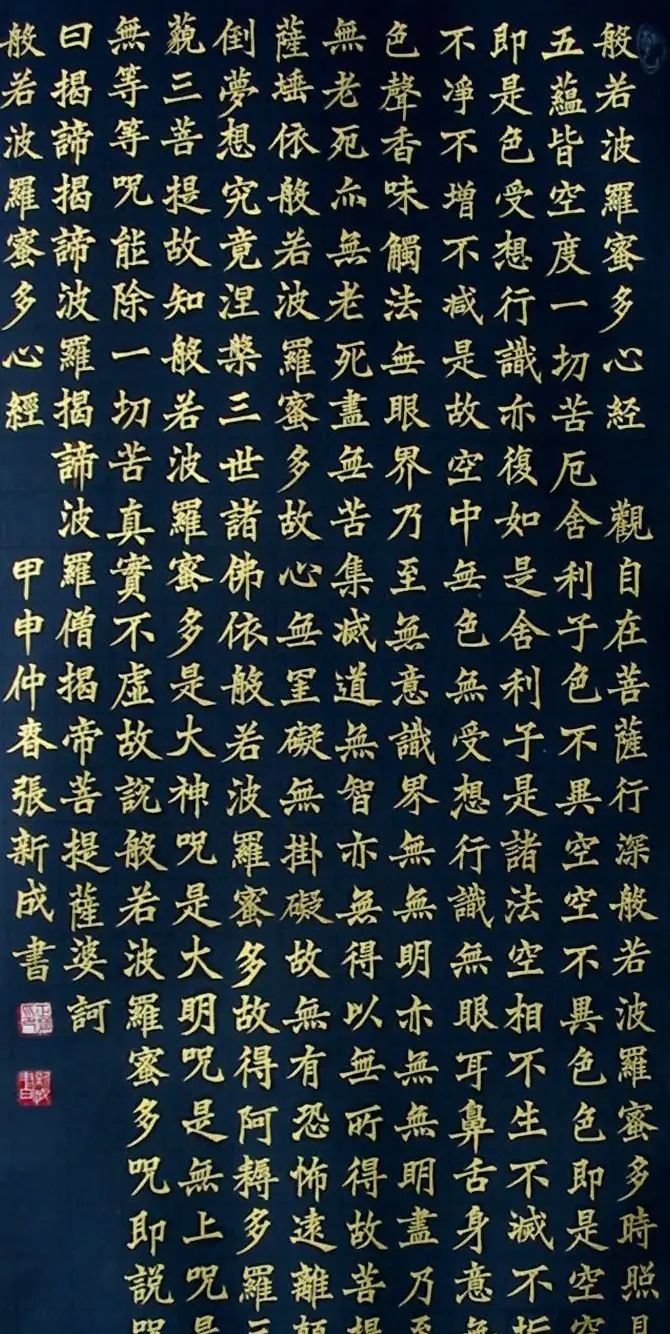 般若波羅蜜多心经 觀自在菩薩行深般若波羅蜜多時照見
五蘊皆空度一切苦厄舍利子色不異空空不異色色即是空空
即是色受想行識亦復如是舍利子是諸法空相不生不滅不垢
不淨不增不减是故空中無色無受想行識無眼耳鼻舌身意無
色聲香味觸法無眼界乃至無意識界無無明亦無無明盡乃至
無老死亦無老死盡無苦集滅道無智亦無得以無所得故菩提
薩埵依般若波羅蜜多故心無罣礙無掛礙故無有恐怖遠離顛
倒夢想究竟涅槃三世諸佛依般若波羅蜜多故得阿耨多羅三
藐三菩提故知般若波羅蜜多是大神咒是大明咒是無上咒是
無等等咒能除一切苦真實不虛故説般若波羅蜜多咒即説咒
曰揭諦揭諦波羅揭諦波羅僧揭帝菩提薩婆訶
般若波羅蜜多心經 甲申仲春張新成書